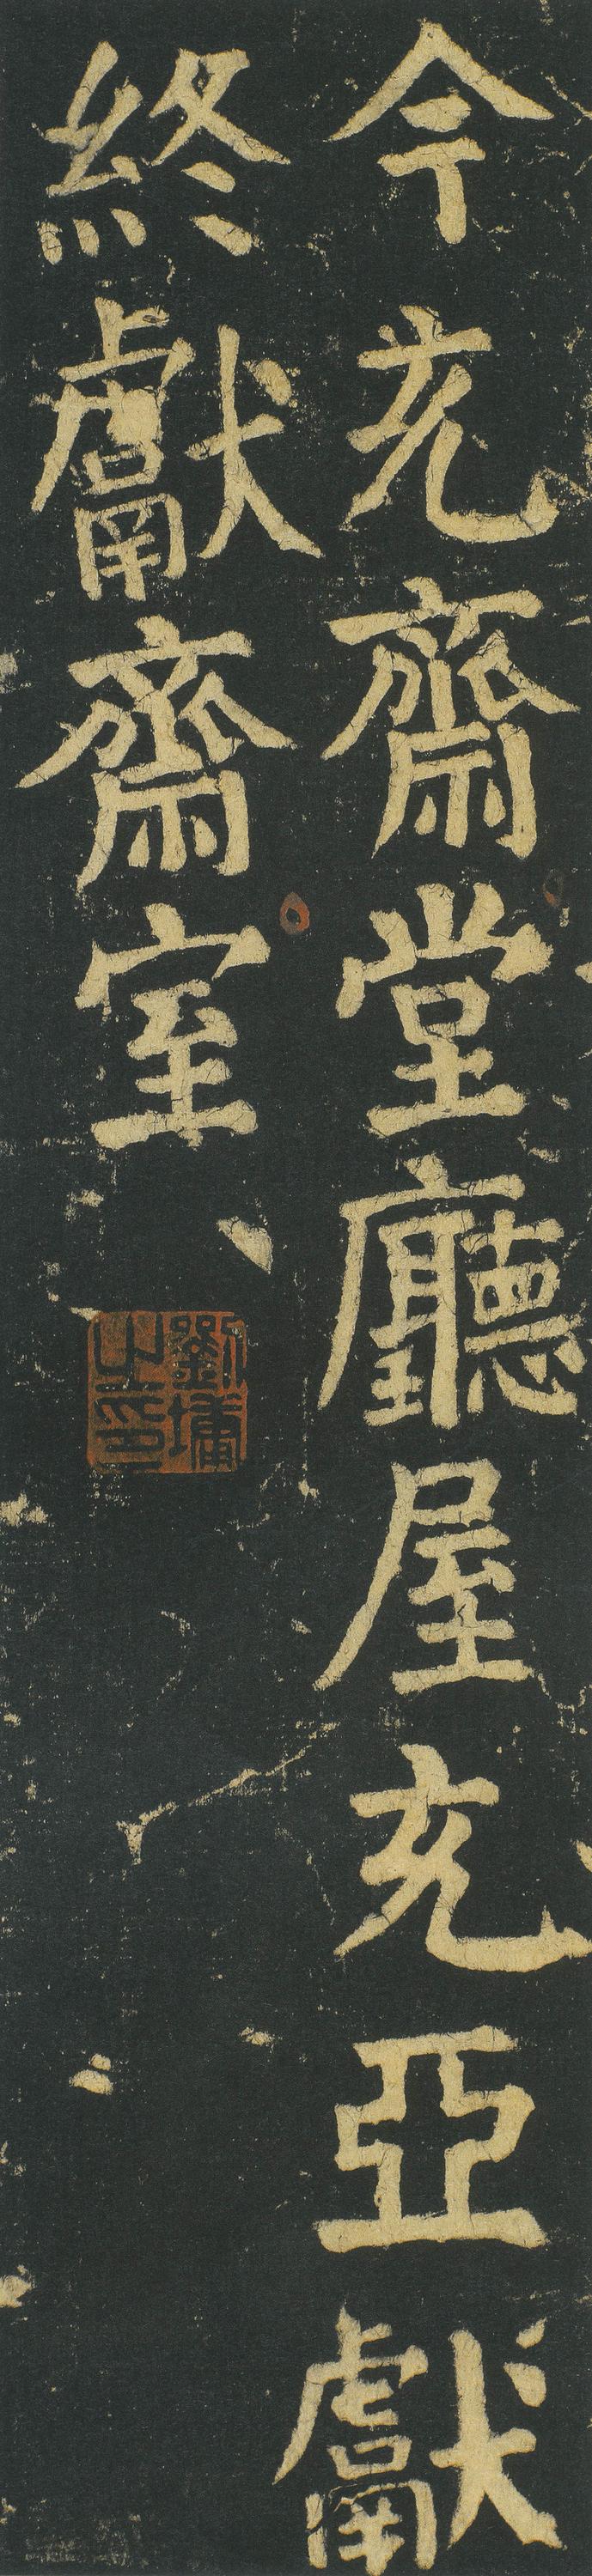 今充齋堂廳屋充亞獻
終獻齋室
劉墉
之印